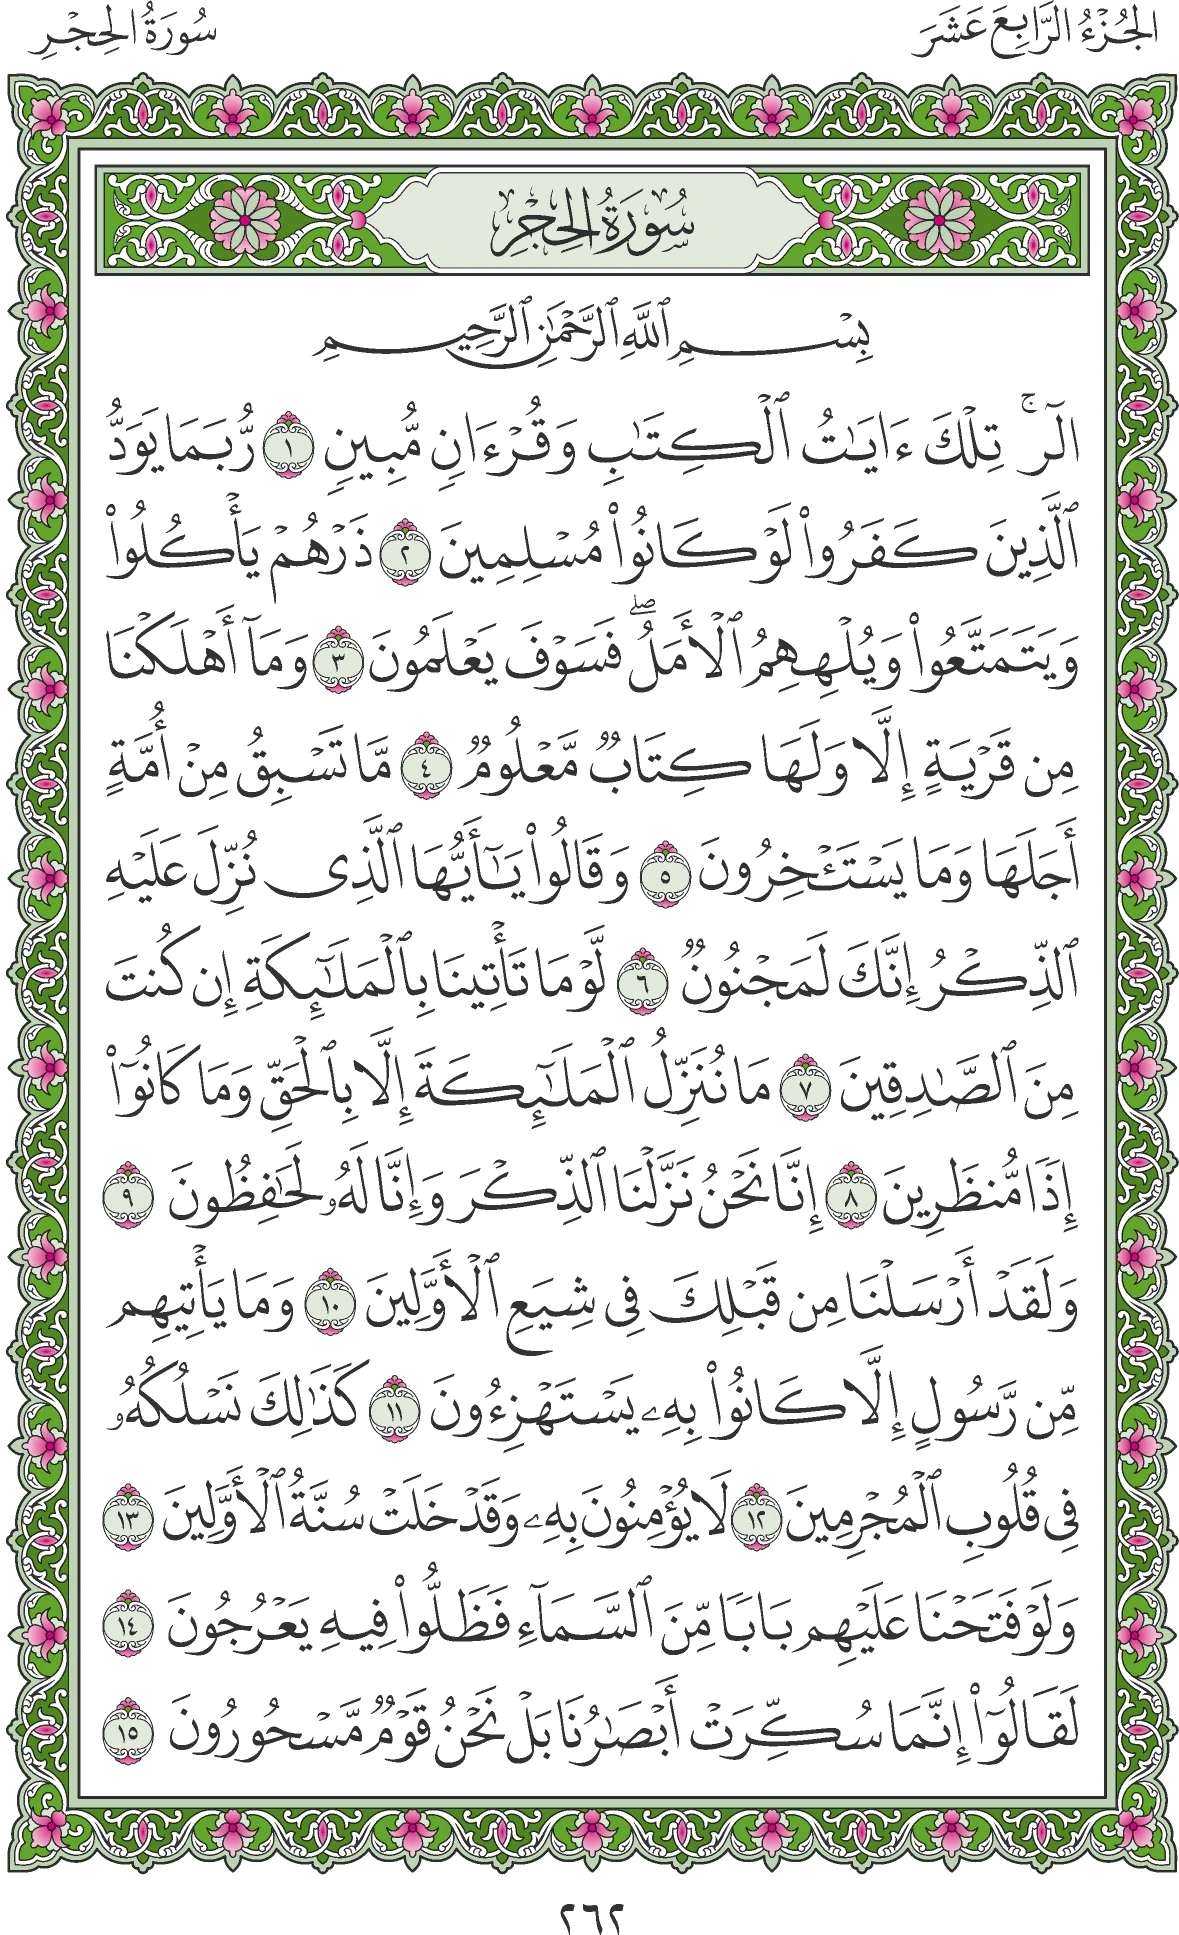 الجُزْءُ الرَّابِعَ عَشَرَ
سُورَةُ الحِجْرِ
سُورَةُ الحِجْرِ
بِسْمِ ٱللَّهِ ٱلرَّحْمَٰنِ ٱلرَّحِيمِ
الٓرۚ تِلْكَ ءَايَٰتُ ٱلْكِتَٰبِ وَقُرْءَانٍ مُّبِينٍ ١ رُّبَمَا يَوَدُّ
ٱلَّذِينَ كَفَرُوا۟ لَوْ كَانُوا۟ مُسْلِمِينَ ٢ ذَرْهُمْ يَأْكُلُوا۟
وَيَتَمَتَّعُوا۟ وَيُلْهِهِمُ ٱلْأَمَلُۖ فَسَوْفَ يَعْلَمُونَ ٣ وَمَآ أَهْلَكْنَا
مِن قَرْيَةٍ إِلَّا وَلَهَا كِتَابٌ مَّعْلُومٌ ٤ مَّا تَسْبِقُ مِنْ أُمَّةٍ
أَجَلَهَا وَمَا يَسْتَـْٔخِرُونَ ٥ وَقَالُوا۟ يَٰٓأَيُّهَا ٱلَّذِى نُزِّلَ عَلَيْهِ
ٱلذِّكْرُ إِنَّكَ لَمَجْنُونٌ ٦ لَّوْ مَا تَأْتِينَا بِٱلْمَلَٰٓئِكَةِ إِن كُنتَ
مِنَ ٱلصَّٰدِقِينَ ٧ مَا نُنَزِّلُ ٱلْمَلَٰٓئِكَةَ إِلَّا بِٱلْحَقِّ وَمَا كَانُوٓا۟
إِذًا مُّنظَرِينَ ٨ إِنَّا نَحْنُ نَزَّلْنَا ٱلذِّكْرَ وَإِنَّا لَهُۥ لَحَٰفِظُونَ ٩
وَلَقَدْ أَرْسَلْنَا مِن قَبْلِكَ فِى شِيَعِ ٱلْأَوَّلِينَ ١٠ وَمَا يَأْتِيهِم
مِّن رَّسُولٍ إِلَّا كَانُوا۟ بِهِۦ يَسْتَهْزِءُونَ ١١ كَذَٰلِكَ نَسْلُكُهُۥ
فِى قُلُوبِ ٱلْمُجْرِمِينَ ١٢ لَا يُؤْمِنُونَ بِهِۦ وَقَدْ خَلَتْ سُنَّةُ ٱلْأَوَّلِينَ ١٣
وَلَوْ فَتَحْنَا عَلَيْهِم بَابًا مِّنَ ٱلسَّمَآءِ فَظَلُّوا۟ فِيهِ يَعْرُجُونَ ١٤
لَقَالُوٓا۟ إِنَّمَا سُكِّرَتْ أَبْصَٰرُنَا بَلْ نَحْنُ قَوْمٌ مَّسْحُورُونَ ١٥
٢٦٢